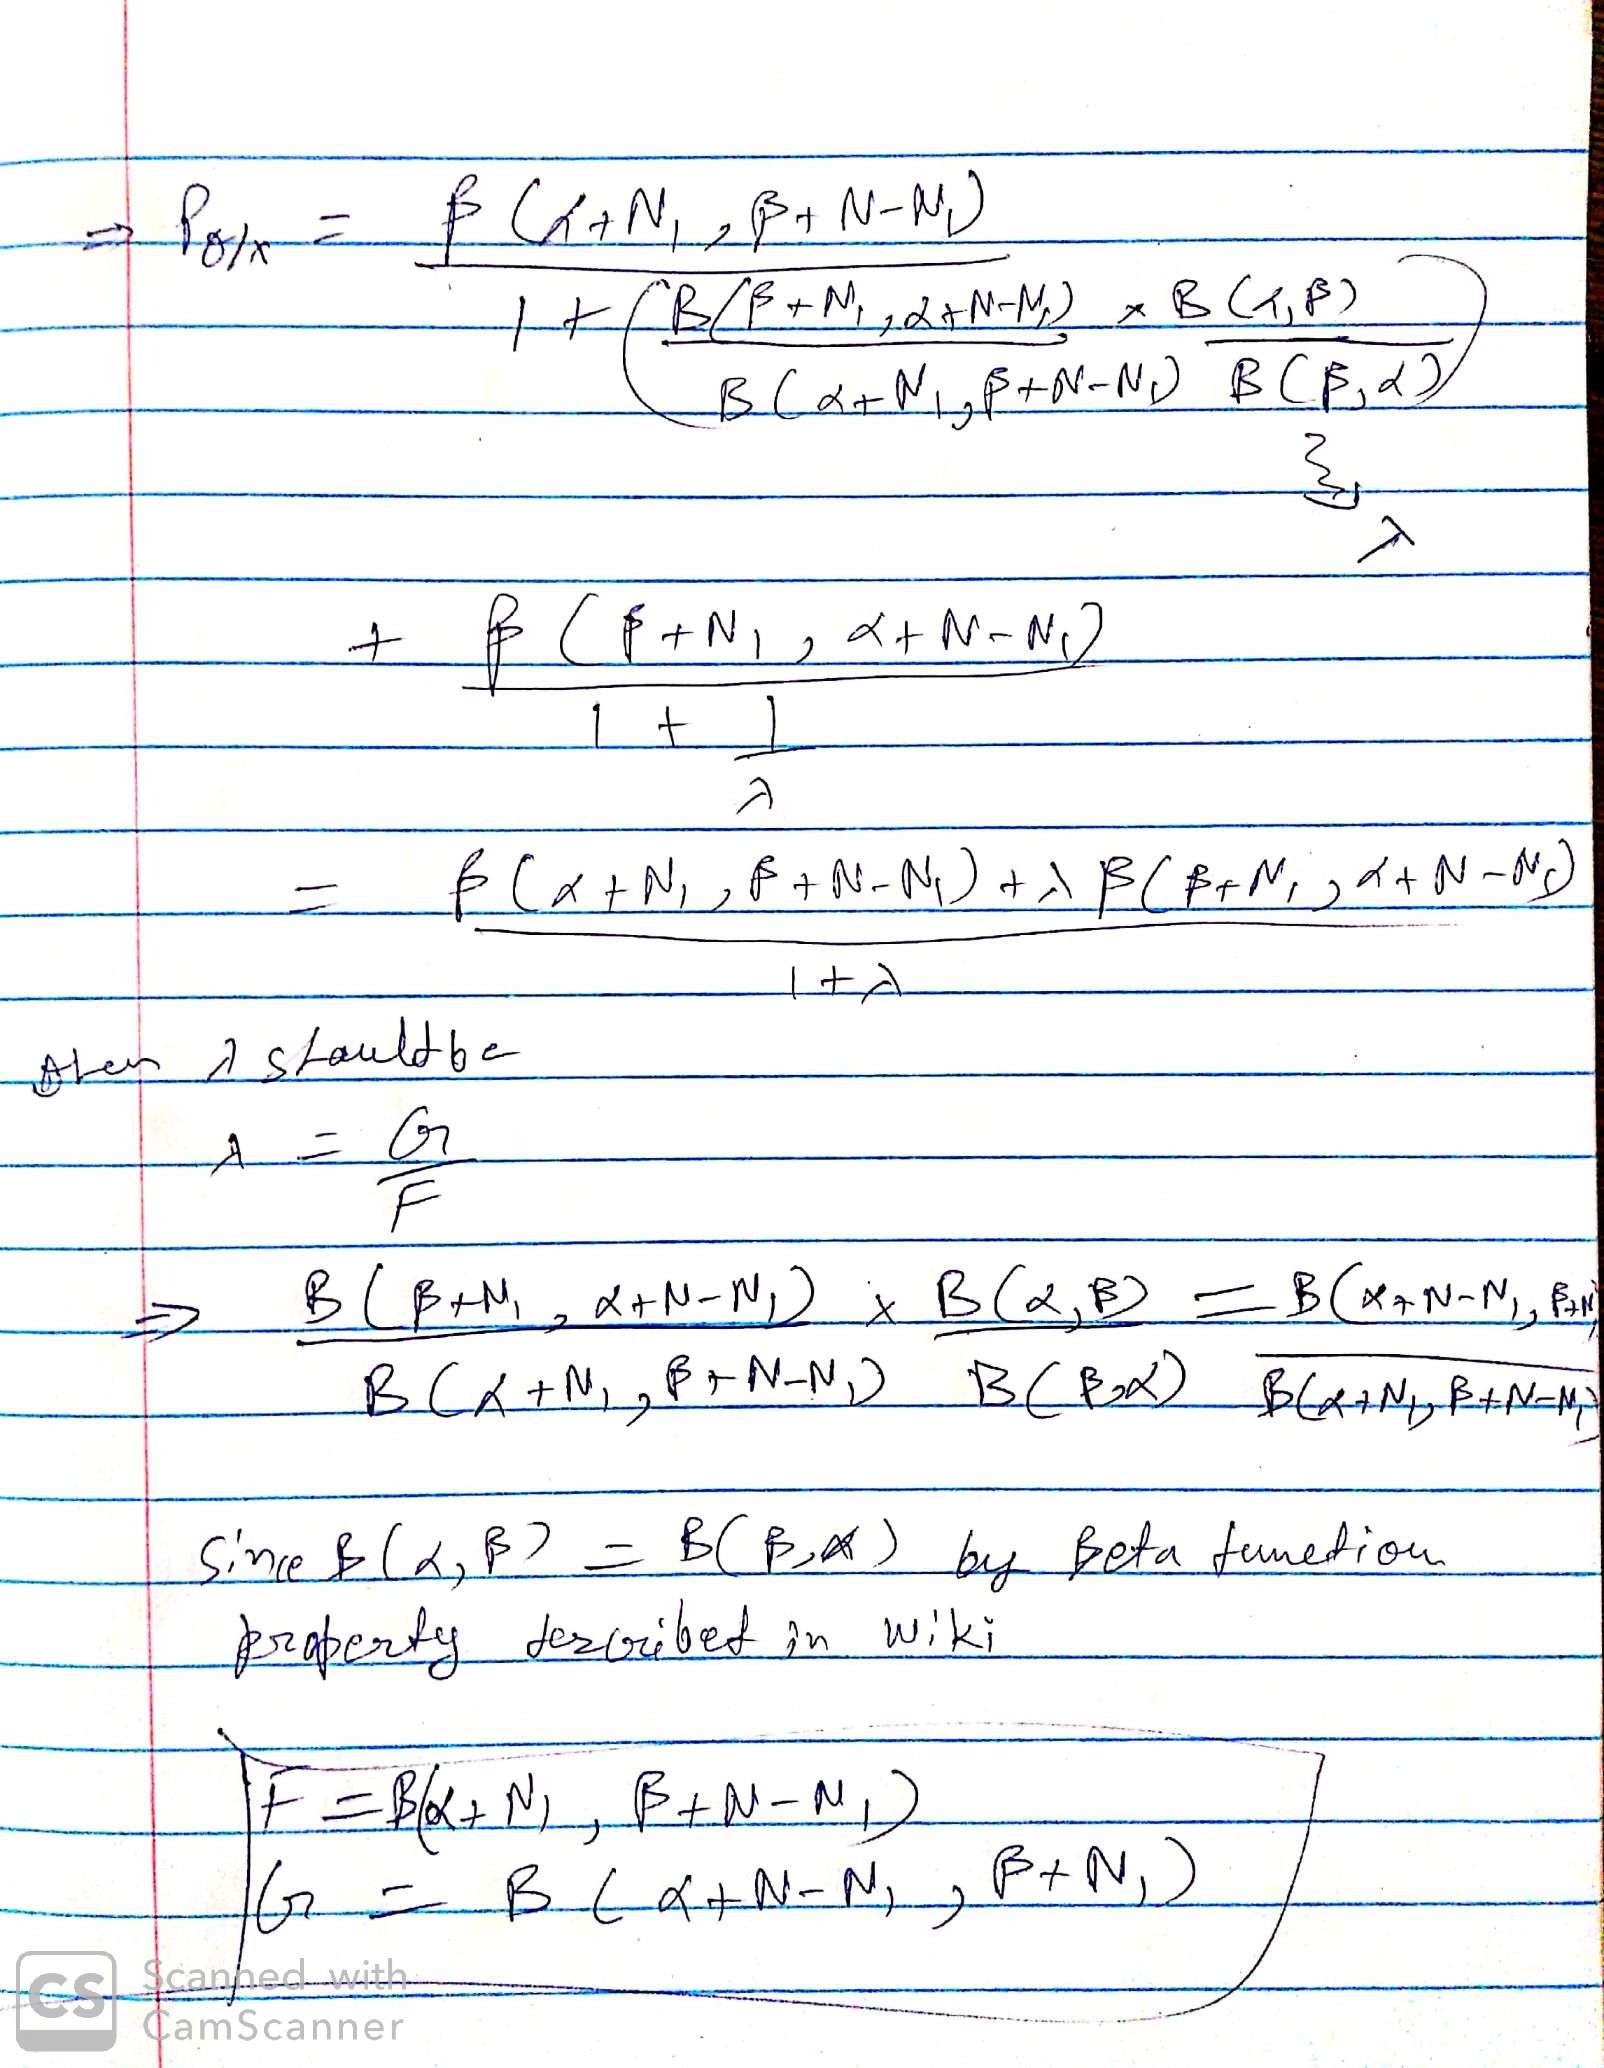 ⇒ P_θ/x = β (α+N₁, β+N-N₁)
1 + ( B(β+N₁, α+N-N₁) × B(α,β)
B(α+N₁, β+N-N₁) B(β,α) )
λ
+ β (β+N₁, α+N-N₁)
1 + 1
λ
= β(α+N₁, β+N-N₁) + λ β(β+N₁, α+N-N₁)
1+λ
then λ should be
λ = G
F
⇒ B(β+N₁, α+N-N₁) × B(α,β) = B(α+N-N₁, β+N₁
B(α+N₁, β+N-N₁) B(β,α) B(α+N₁, β+N-N₁)
Since B(α,β) = B(β,α) by Beta function
property described in wiki
F = B(α+N₁, β+N-N₁)
G = B(α+N-N₁, β+N₁)
CS Scanned with
CamScanner